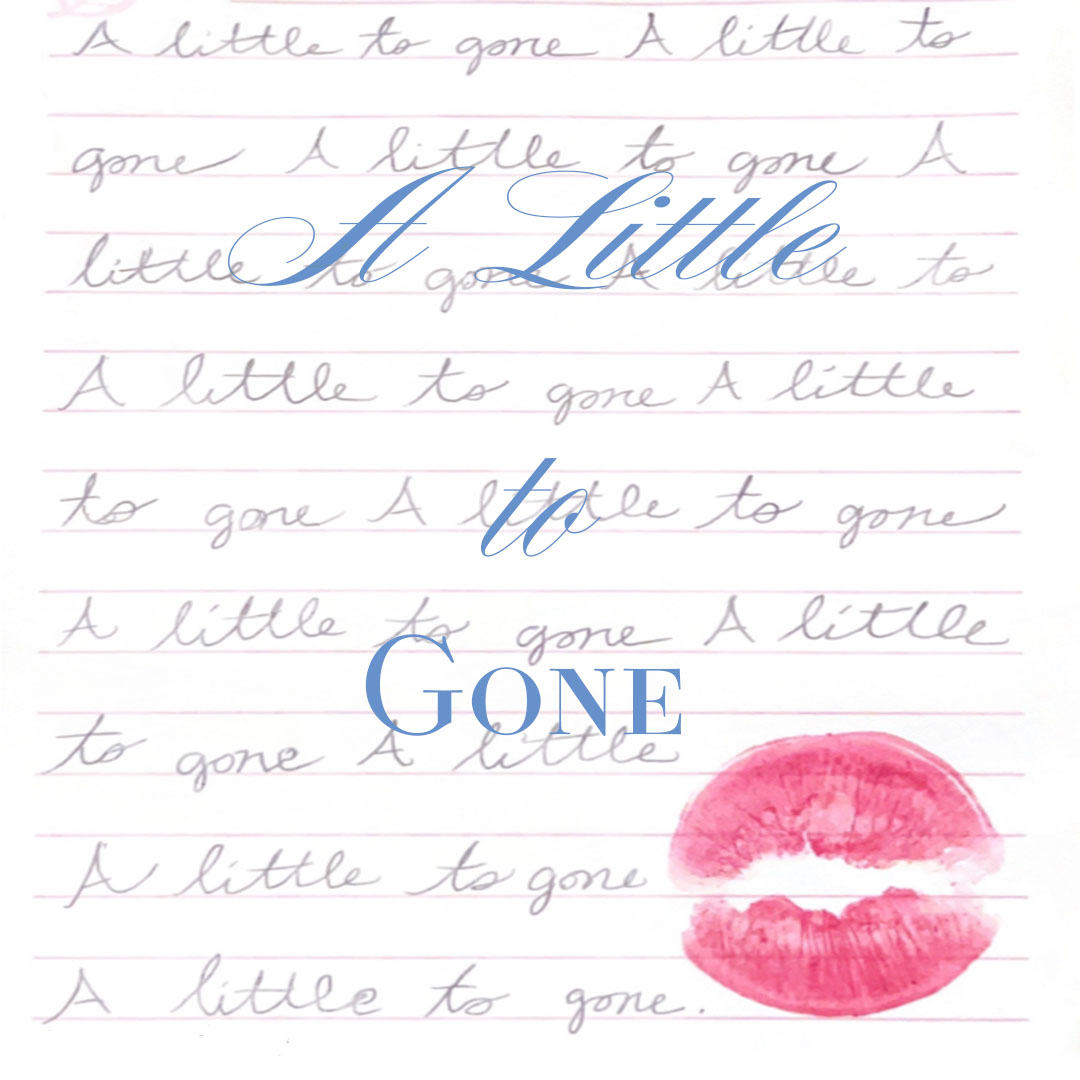 A little to gone A little to
gone A little to gone A
A Little
little to gone A little to
A little to gone A little
to gone A little to gone
to
A little to gone A little
GONE
to gone A little
A little to gone
A little to gone.